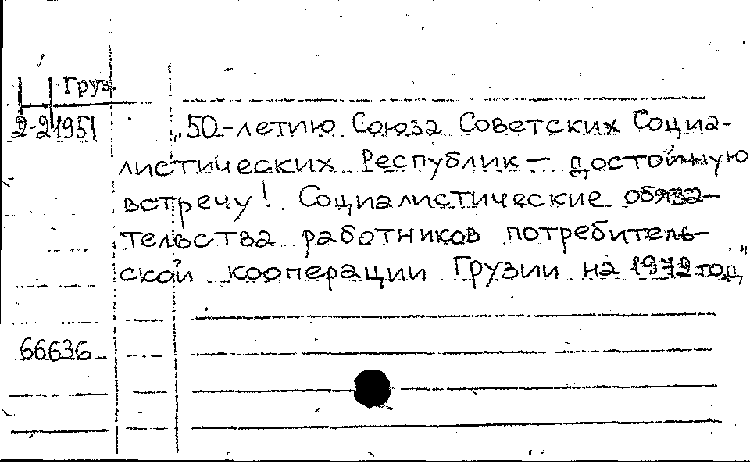 Груз.
2-21951
„50-летию Союза Советских Социа-
листических Республик – достойную
встречу! Социалистические обяза-
тельства работников потребитель-
ской кооперации Грузии на 1972 год"
66636